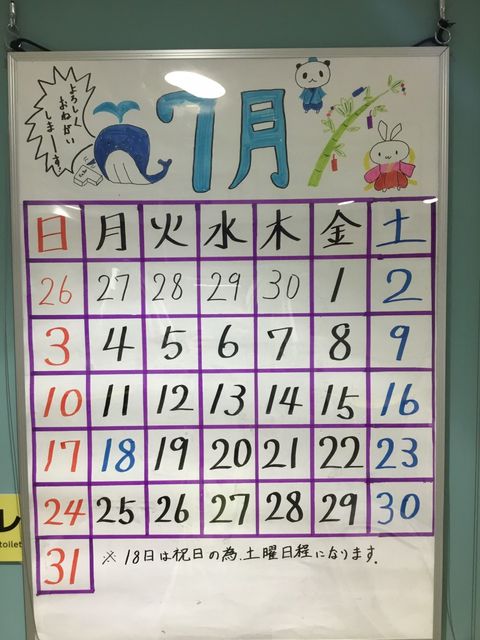 よろしく
おねがい
しまーす!
7月
日 月 火 水 木 金 土
26 27 28 29 30 1 2
3 4 5 6 7 8 9
10 11 12 13 14 15 16
17 18 19 20 21 22 23
24 25 26 27 28 29 30
31 ※18日は祝日の為、土曜日程になります。
レ
toilet